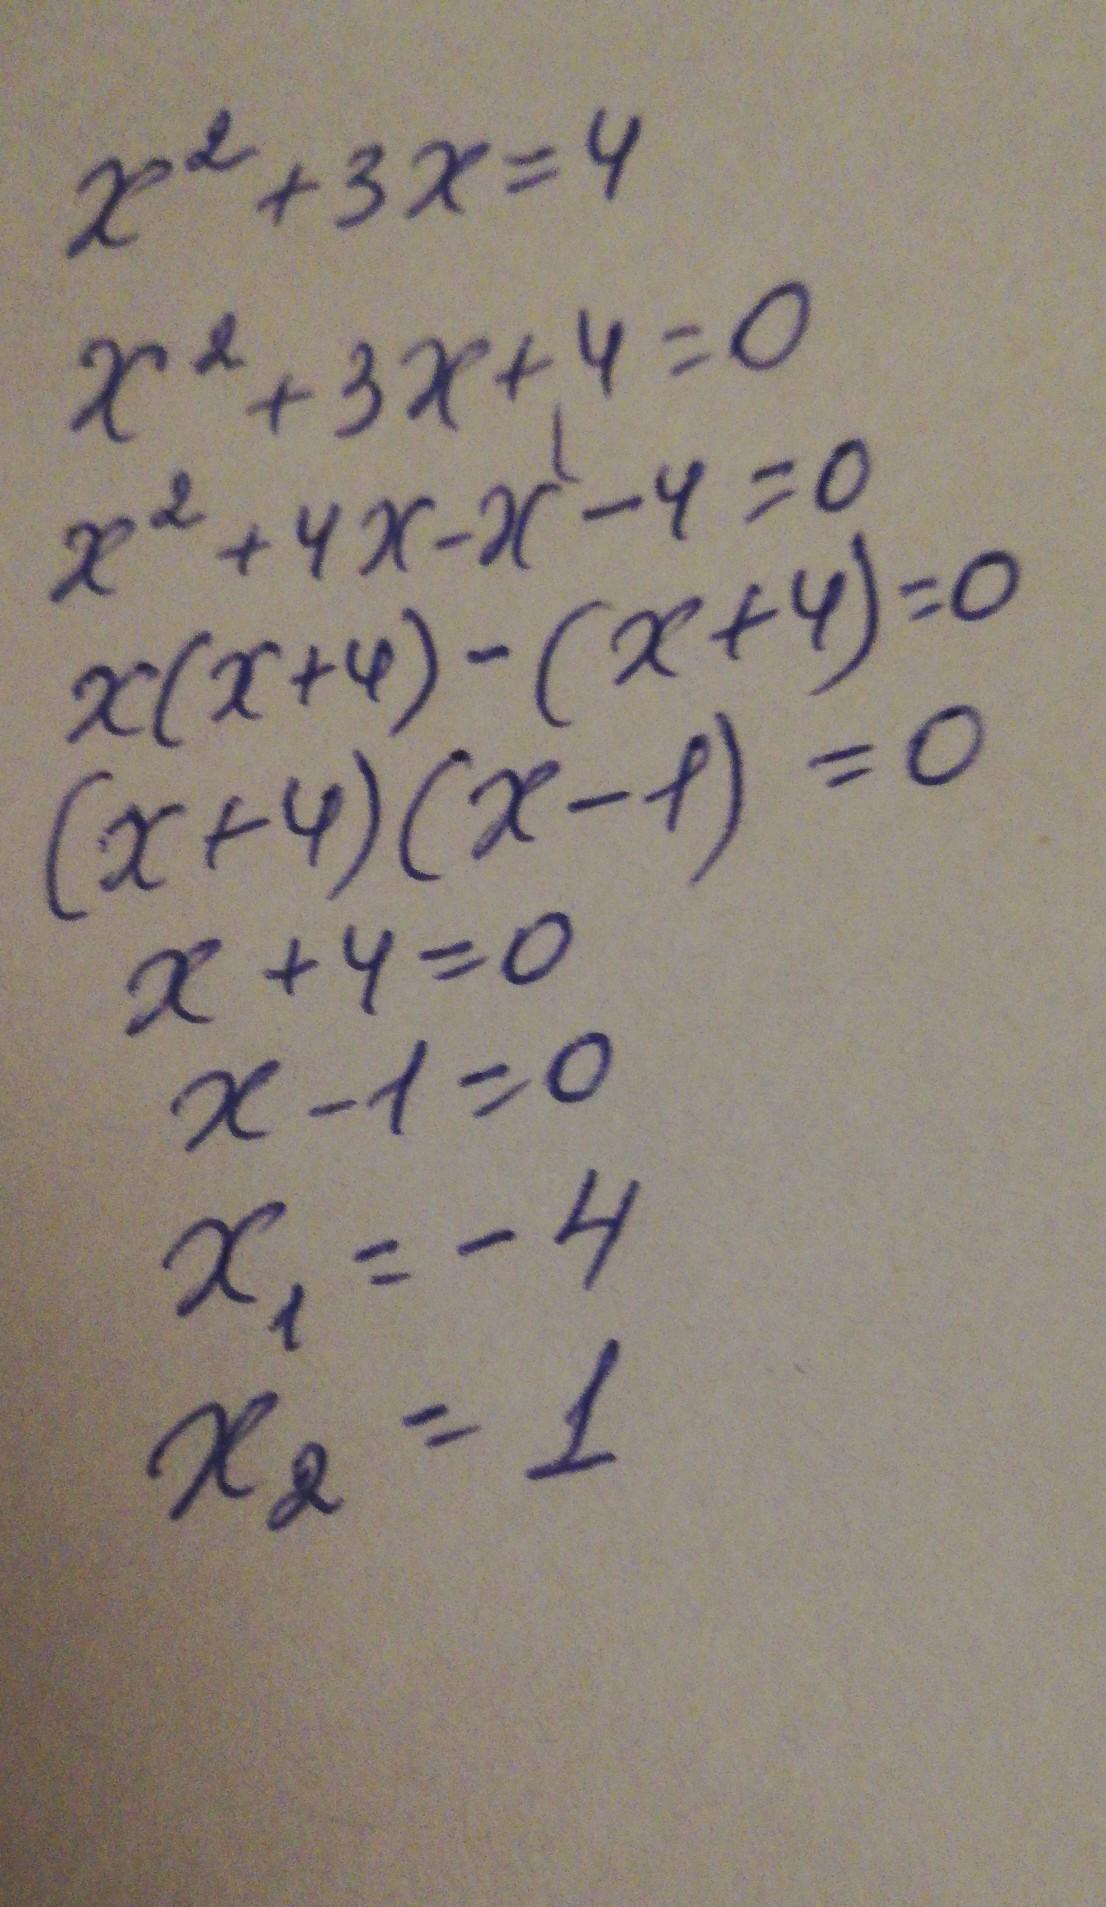 x² + 3x = 4
x² + 3x + 4 = 0
x² + 4x - x - 4 = 0
x(x+4) - (x+4) = 0
(x+4)(x-1) = 0
x + 4 = 0
x - 1 = 0
x₁ = - 4
x₂ = 1